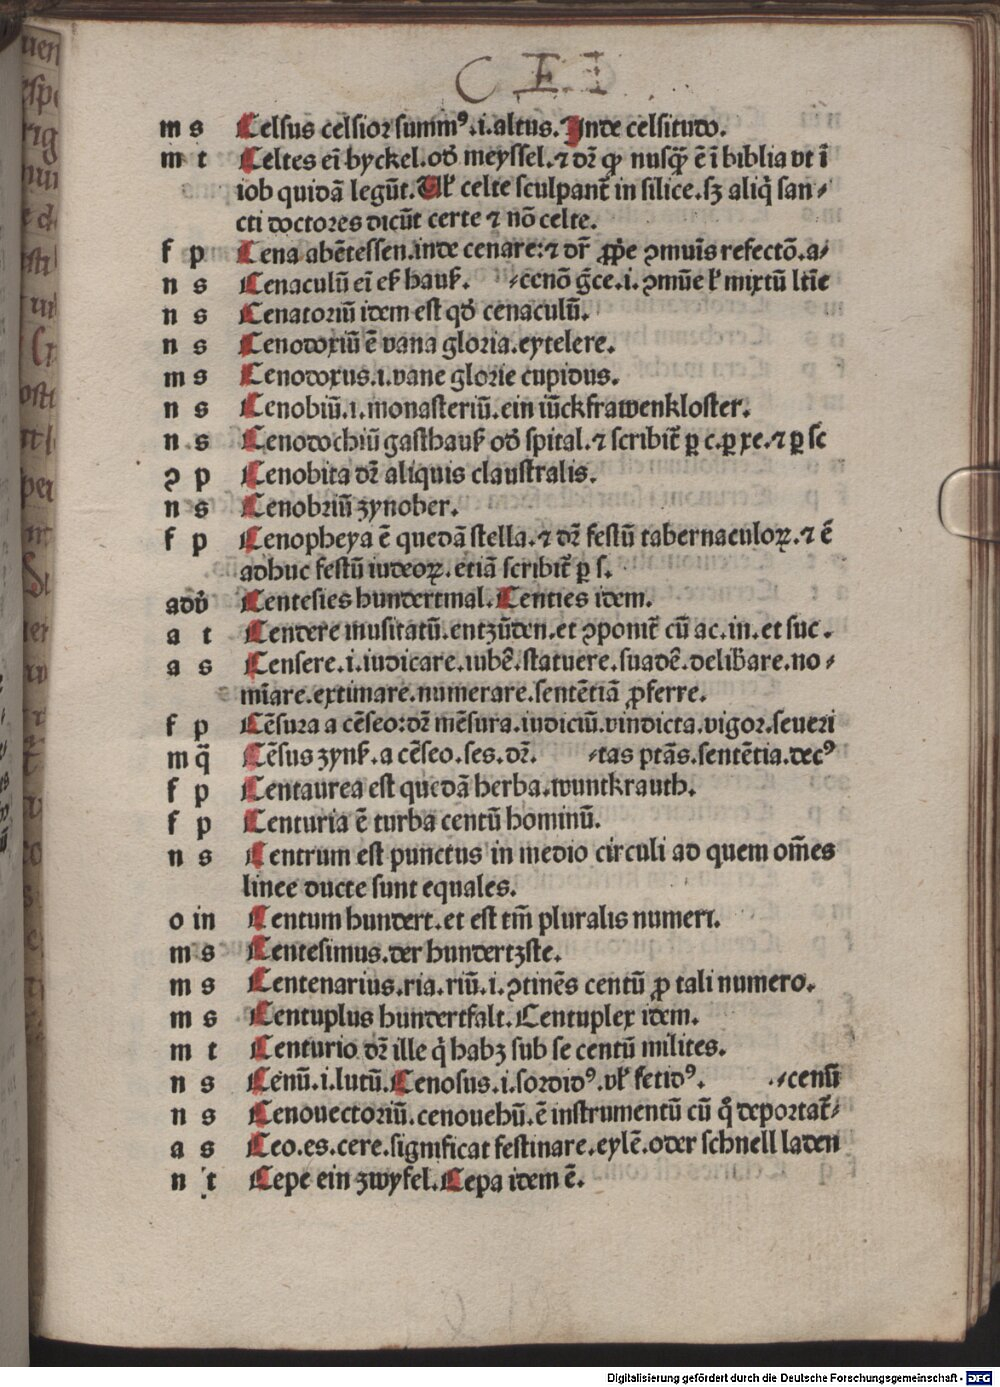 C E I
m s Celsus celsior summꝰ.i.altus.Inde celsitudo.
m t Celtes eī byckel.od̓ meyssel.⁊ dꝛ̄ ꝙ nusq̄ꝫ ē ī biblia vt ī
iob quidā legūt.Ul̓ celte sculpant̄ in silice.sꝫ aliq̓ san⸗
cti doctores dicūt certe ⁊ nō celte.
f p Cena abētessen.inde cenare:⁊ dr̄ ꝓp̄e ꝯmuīs refectō.a⸗
n s Cenaculū eī eß hauß. ⸗cenō ḡce.i.ꝯmūe l̓ mixtū ltīe
n s Cenatoriū idem est qd̓ cenaculū.
n s Cenodoxiū ē vana gloria.eytelere.
m s Cenodoxus.i.vane glorie cupidus.
n s Cenobiū.i.monasteriū.ein iūckfrawenkloster.
n s Cenodochiū gasthauß od̓ spital.⁊ scribit̄ ꝑ c.ꝑ xe.⁊ ꝑ sc
ꝯ p Cenobita dꝛ̄ aliquis claustralis.
n s Cenobriū zynober.
f p Cenopheya ē quedā stella.⁊ dꝛ̄ festū tabernaculoꝝ.⁊ ē
adhuc festū iudeoꝝ.etiā scribit̄ ꝑ s.
adv̓ Centesies hundertmal.Centies idem.
a t Cendere inusitatū.entzūden.et ꝯponit̄ cū ac.in.et suc.
a s Censere.i.iudicare.iubē.statuere.suadē.delib̄are.no⸗
mīare.extimare.numerare.sentētiā ꝓferre.
f p Cēsura a cēseo:dꝛ̄ mēsura.iudiciū.vindicta.vigor.seueri
m q̄ Cēsus zynß.a cēseo.ses.dꝛ̄. ⸗tas ptās.sentētia.decꝰ
f p Centaurea est quedā herba.wuntkrauth.
f p Centuria ē turba centū hominū.
n s Centrum est punctus in medio circuli ad quem om̄es
linee ducte sunt equales.
o in Centum hundert.et est tm̄ pluralis numeri.
m s Centesimus.der hundertzste.
m s Centenarius.ria.riū.i.ꝯtinēs centū ꝓ tali numero.
m s Centuplus hundertfalt.Centuplex idem.
m t Centurio dꝛ̄ ille q̓ habꝫ sub se centū milites.
n s Cenū.i.lutū.Cenosus.i.sordidꝰ.vl̓ fetidꝰ. ⸗cenū
n s Cenouectoriū.cenouehū.ē instrumentū cū q̊ deportat̄⸗
a s Ceo.es.cere.significat festinare.eylē.oder schnell laden
n t Cepe ein zwyfel.Cepa idem ē.
Digitalisierung gefördert durch die Deutsche Forschungsgemeinschaft - DFG